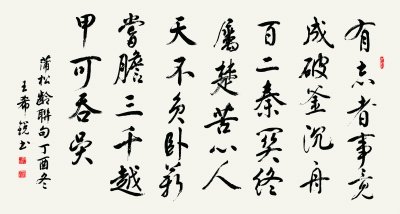 有志者事竟
成破釜沉舟
百二秦关终
屬楚苦心人
天不负卧薪
嘗膽三千越
甲可吞吴
蒲松龄联句丁酉冬
王希书